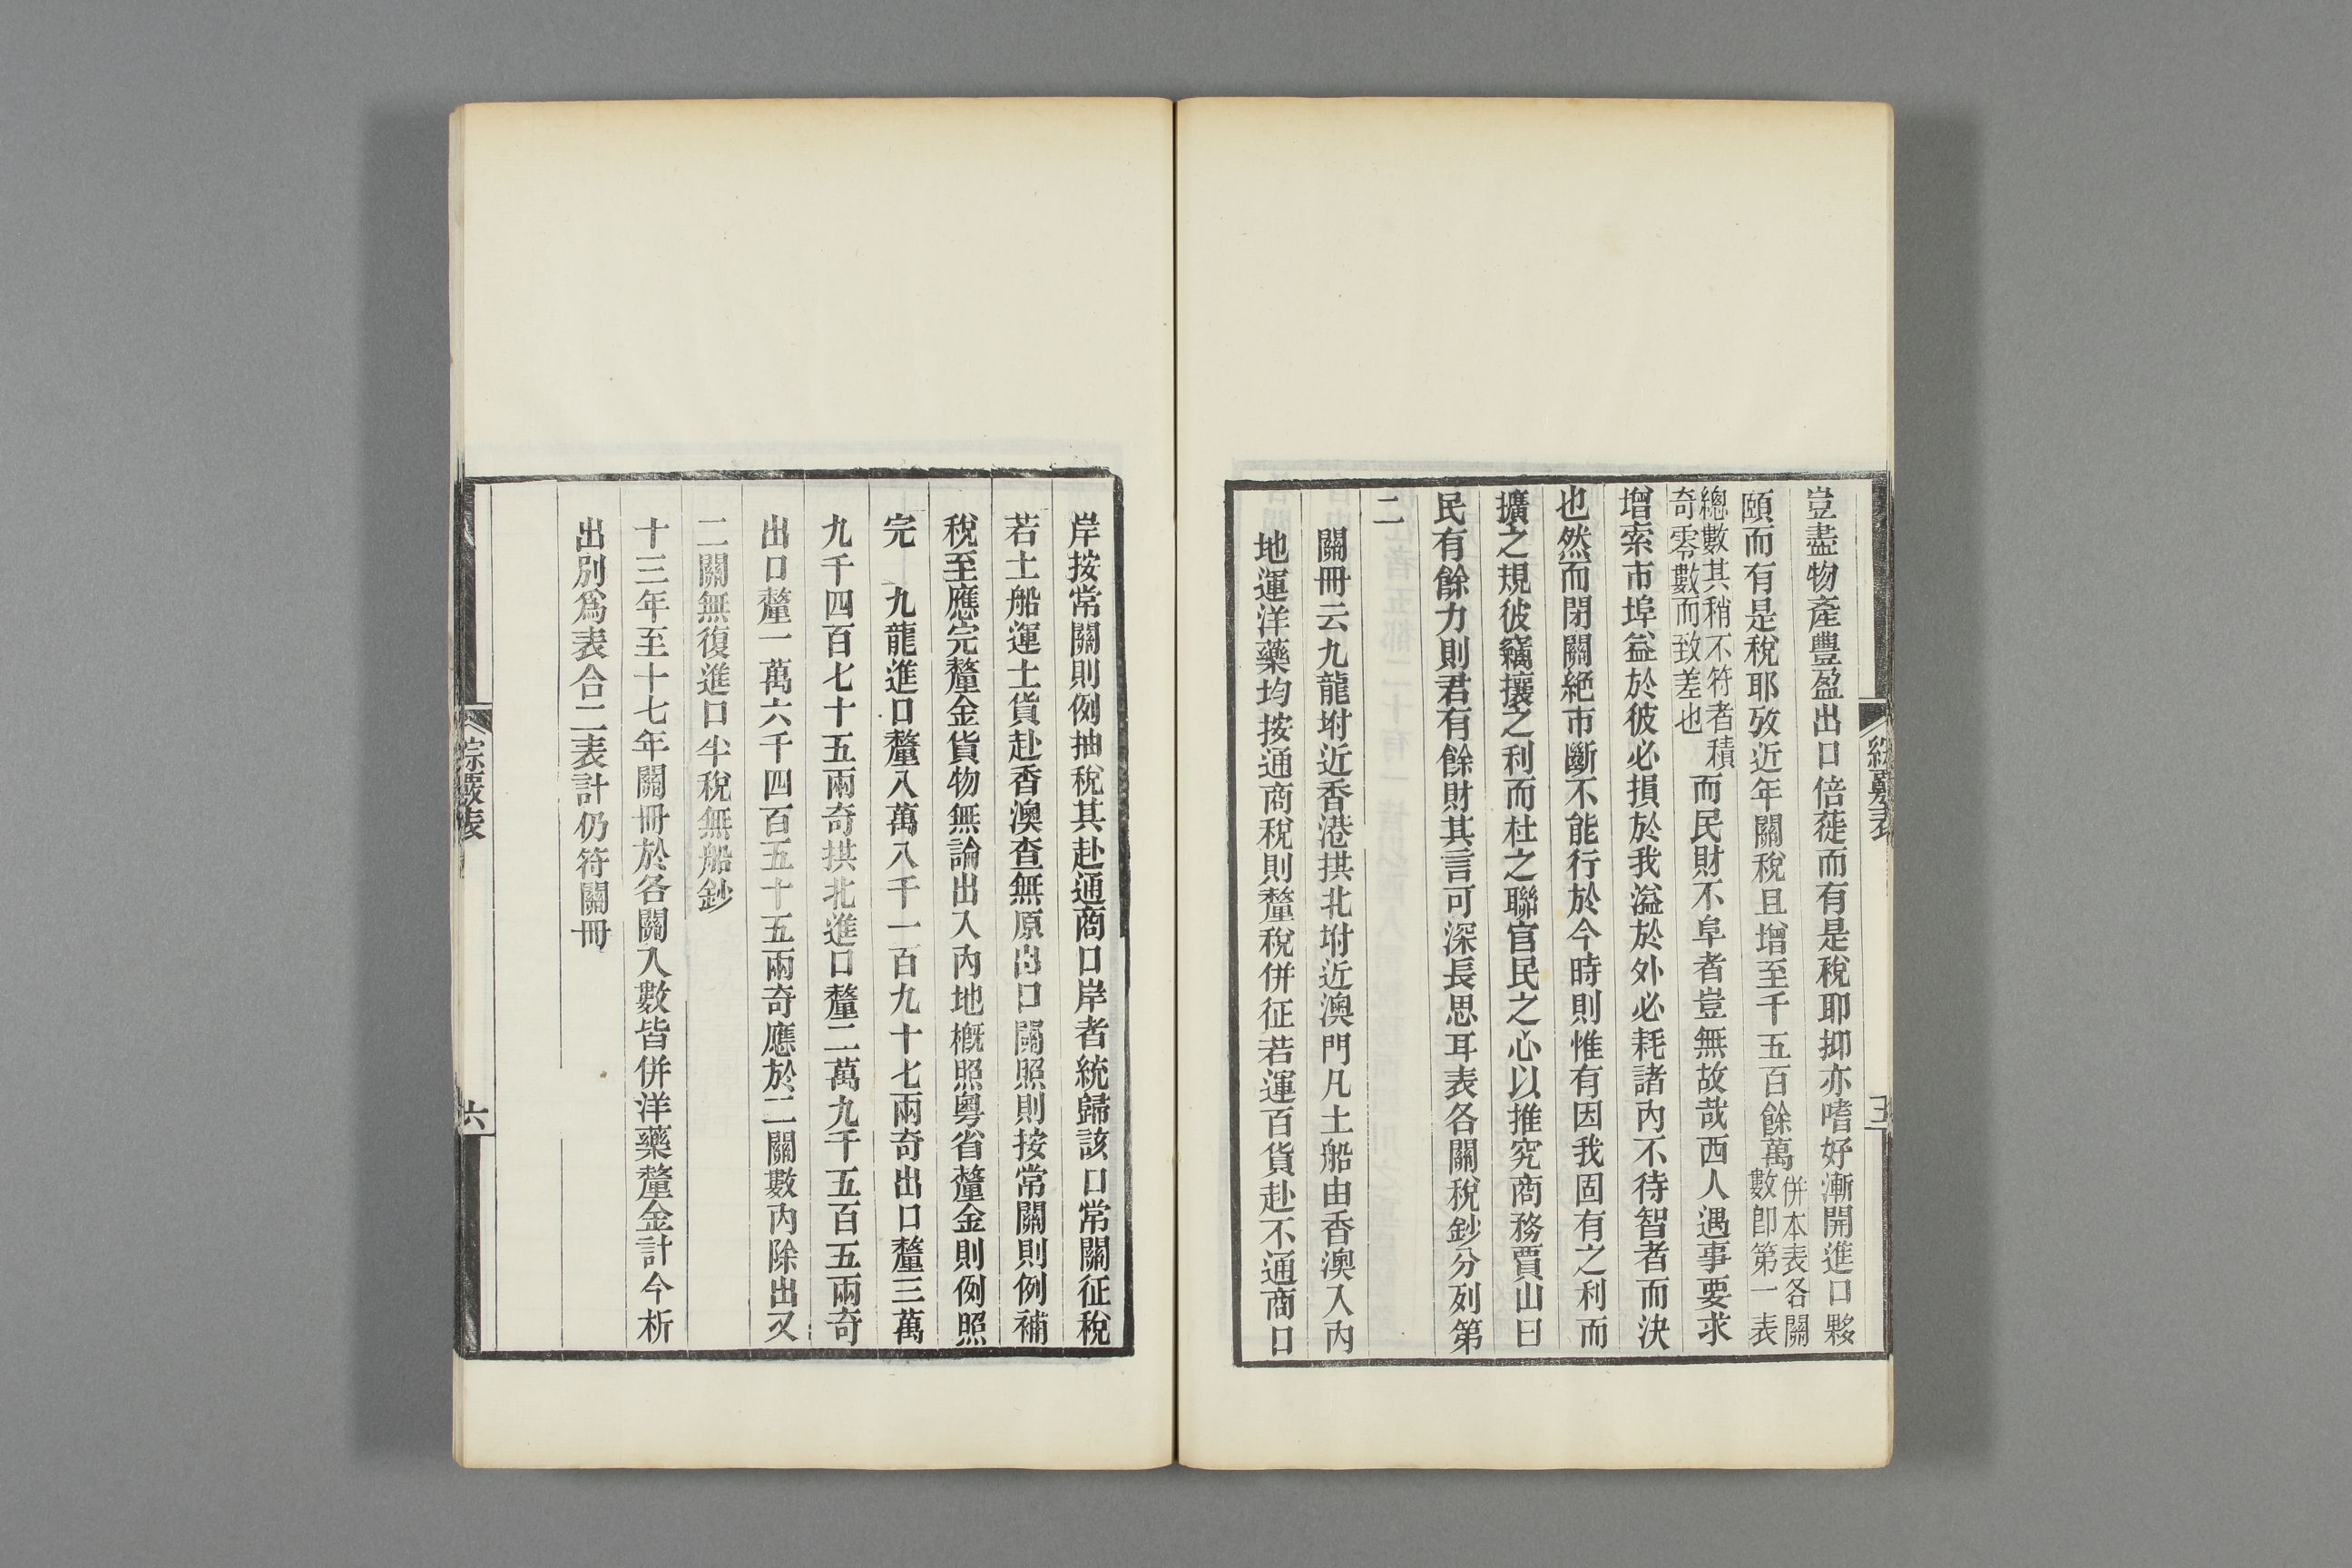 豈盡物產豐盈出口倍蓰而有是稅耶抑亦嗜好漸開進口夥
頤而有是稅耶攷近年關稅且增至千五百餘萬併本表各關數卽第一表
總數其稍不符者積奇零數而致差也而民財不阜者豈無故哉西人遇事要求
增索市埠益於彼必損於我溢於外必耗諸內不待智者而決
也然而閉關絕市斷不能行於今時則惟有因我固有之利而
擴之規彼竊攘之利而杜之聯官民之心以推究商務賈山曰
民有餘力則君有餘財其言可深長思耳表各關稅鈔分列第
二
關冊云九龍坿近香港拱北坿近澳門凡土船由香澳入內
地運洋藥均按通商稅則釐稅併征若運百貨赴不通商口
岸按常關則例抽稅其赴通商口岸者統歸該口常關征稅
若土船運土貨赴香澳查無原出口關照則按常關則例補
稅至應完釐金貨物無論出入內地概照粵省釐金則例照
完　九龍進口釐八萬八千一百九十七兩奇出口釐三萬
九千四百七十五兩奇拱北進口釐二萬九千五百五兩奇
出口釐一萬六千四百五十五兩奇應於二關數內除出又
二關無復進口半稅無船鈔
十三年至十七年關冊於各關入數皆併洋藥釐金計今析
出別爲表合二表計仍符關冊
綜覈表
六